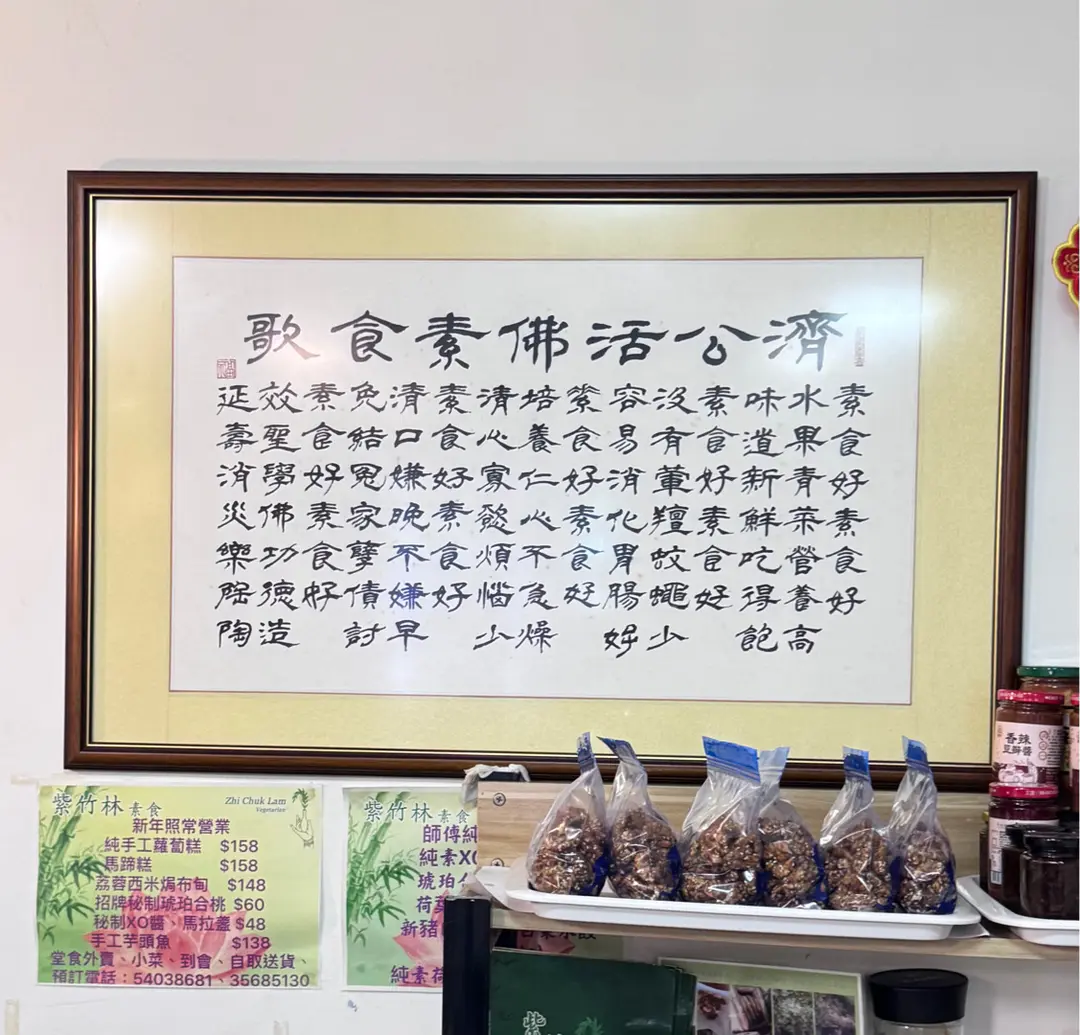 濟公活佛素食歌
素食好素食好
水果青菜營養高
味道新鮮吃得飽
素食好素食好
沒有葷羶蚊蠅少
容易消化胃腸好
素食好素食好
培養仁心不急燥
清心寡慾煩惱少
素食好素食好
清口嫌晚不嫌早
免結冤家孽債討
素食好素食好
效聖學佛功德造
延壽消災樂陶陶
紫竹林素食 Zhi Chuk Lam Vegetarian
新年照常營業
純手工蘿蔔糕 $158
馬蹄糕 $158
荔蓉西米焗布甸 $148
招牌秘制琥珀合桃 $60
秘制XO醬、馬拉盞 $48
手工芋頭魚 $138
堂食外賣、小菜、到會、自取送貨、
預訂電話：54038681、35685130
紫竹林素食
師傅純
純素XO
琥珀合
新豬
純素
香辣
豆瓣醬
紫